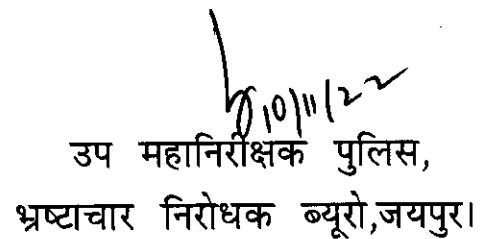 10/11/22
उप महानिरीक्षक पुलिस,
भ्रष्टाचार निरोधक ब्यूरो,जयपुर।